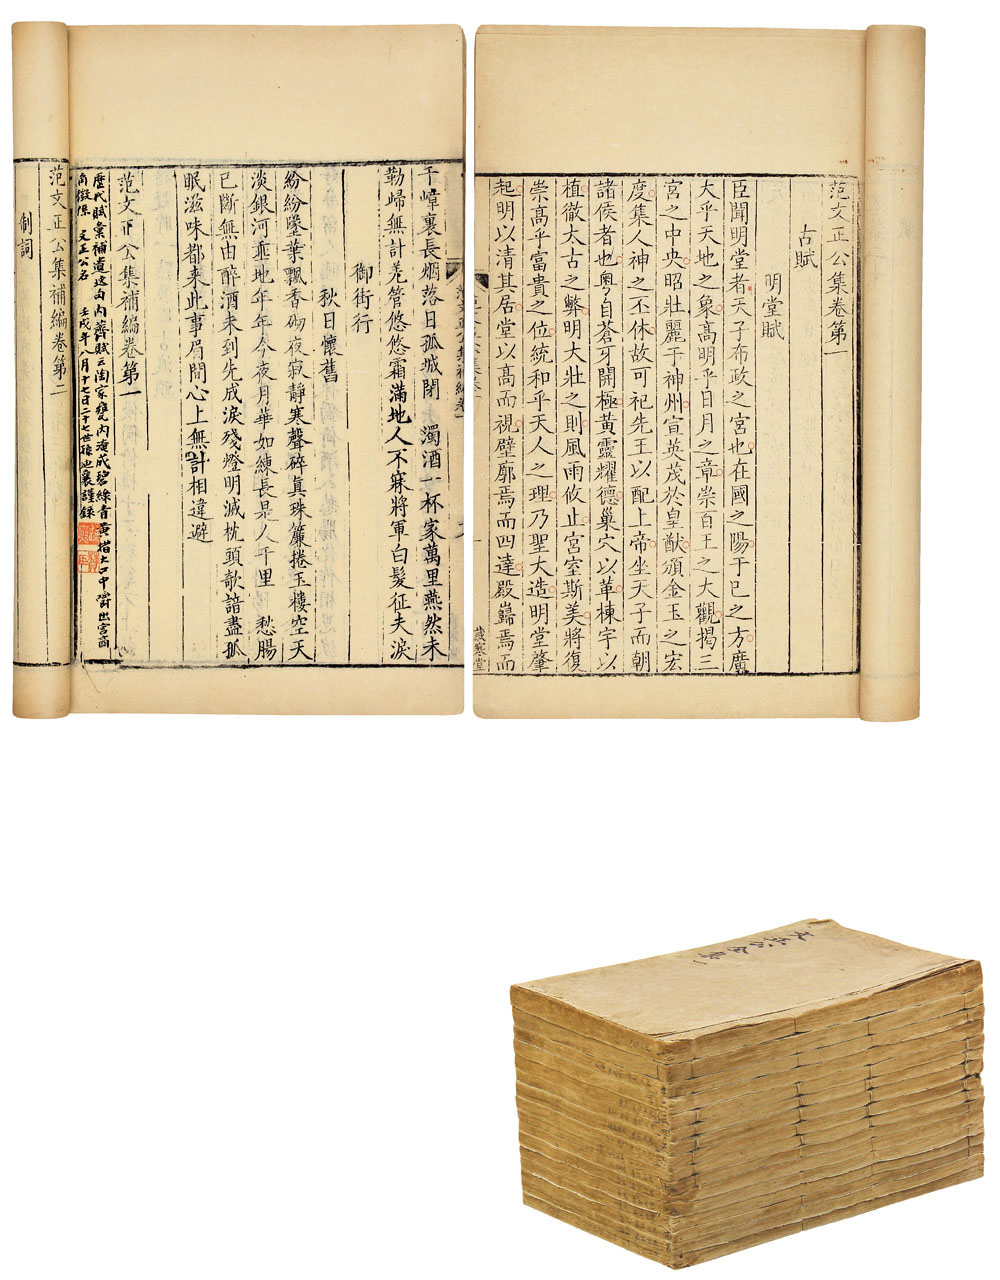 范文正公集卷第一
古賦
明堂賦
臣聞明堂者天子布政之宮也在國之陽于巳之方廣
大乎天地之象高明乎日月之章崇百王之大觀揭三
宮之中央昭壯麗于神州宣英茂於皇猷頒金玉之宏
度集人神之丕休故可祀先王以配上帝坐天子而朝
諸侯者也粵自蒼牙開極黃靈耀德巢穴以革棟宇以
植徹太古之弊明大壯之則風雨攸止宮室斯美將復
崇高乎富貴之位統和乎天人之理乃聖大造明堂肇
起明以清其居堂以高而視壁廓焉而四達殿巋焉而
歲寒堂
千嶂裏長烟落日孤城閉 濁酒一杯家萬里燕然未
勒歸無計羌管悠悠霜滿地人不寐將軍白髮征夫淚
御街行
秋日懷舊
紛紛墜葉飄香砌夜寂靜寒聲碎真珠簾捲玉樓空天
淡銀河垂地年年今夜月華如練長是人千里 愁腸
已斷無由醉酒未到先成淚殘燈明滅枕頭欹諳盡孤
眠滋味都來此事眉間心上無計相違避
范文正公集補編卷第一
歷代賦彙補遺這內薺賦云陶家甕內淹成碧綠青黃措大口中嚼出宮商
角徵係 文正公名 壬戌年八月十七日二十七世孫 謹錄
范文正公集補編卷第二
制詞
文正公全集